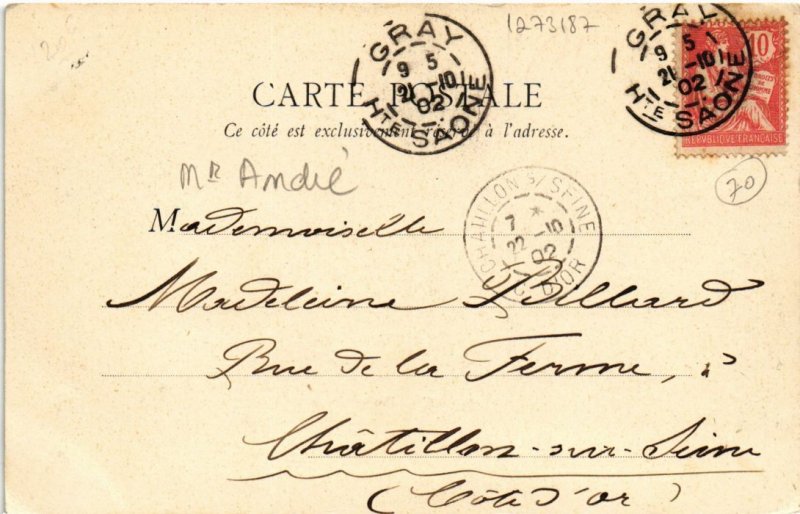 1273187
GRAY
9 5
21 -10
02
Hte SAONE
GRAY
9 5
21 -10
02
Hte SAONE
10
REPUBLIQUE FRANÇAISE
CARTE POSTALE
Ce côté est exclusivement réservé à l'adresse.
70
Mr André
CHATILLON S/ SEINE
7 *
22 -10
02
D'OR
Mademoiselle
Madeleine Billiard
Rue de la Ferme,
Châtillon-sur-Seine
(Côte d'or)